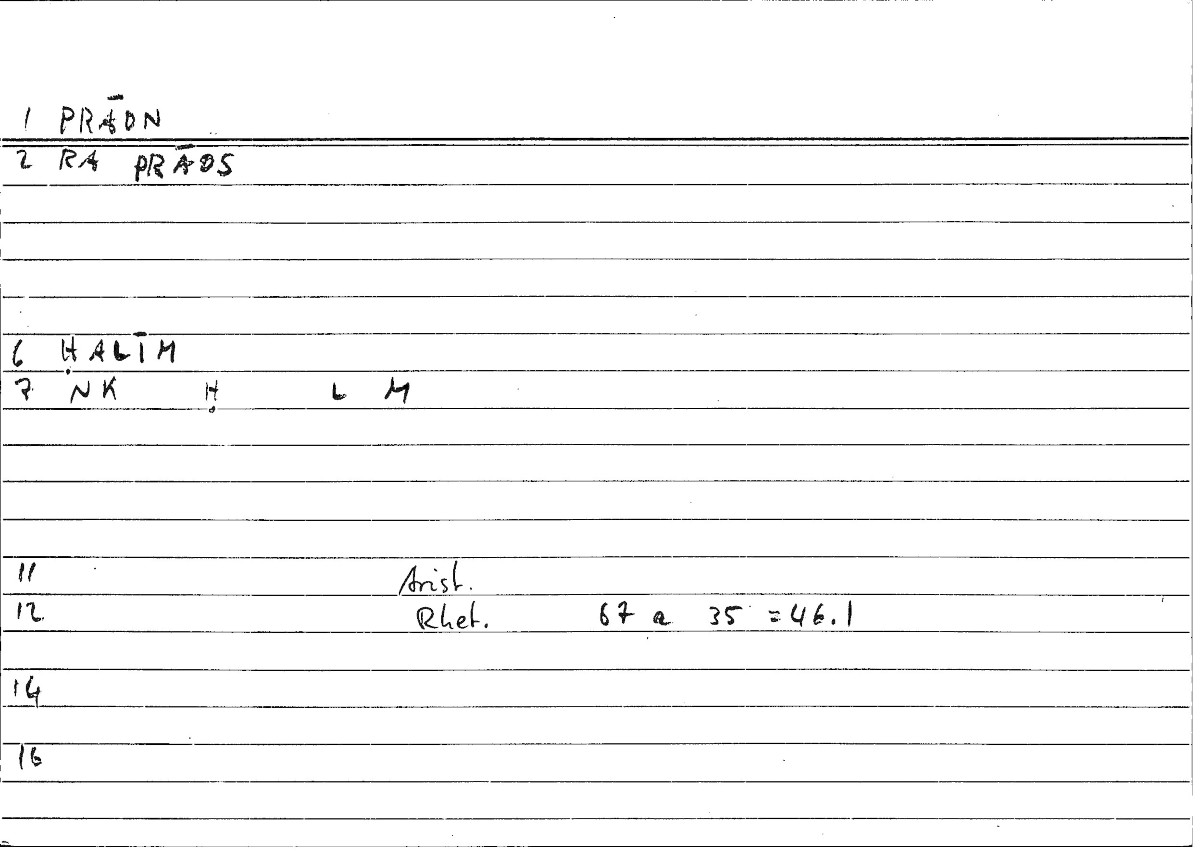 1 PRĀON
2 RA PRĀOS
6 ḤALĪM
7 NK Ḥ L M
11 Arist.
12 Rhet. 67 a 35 = 46.1
14
16